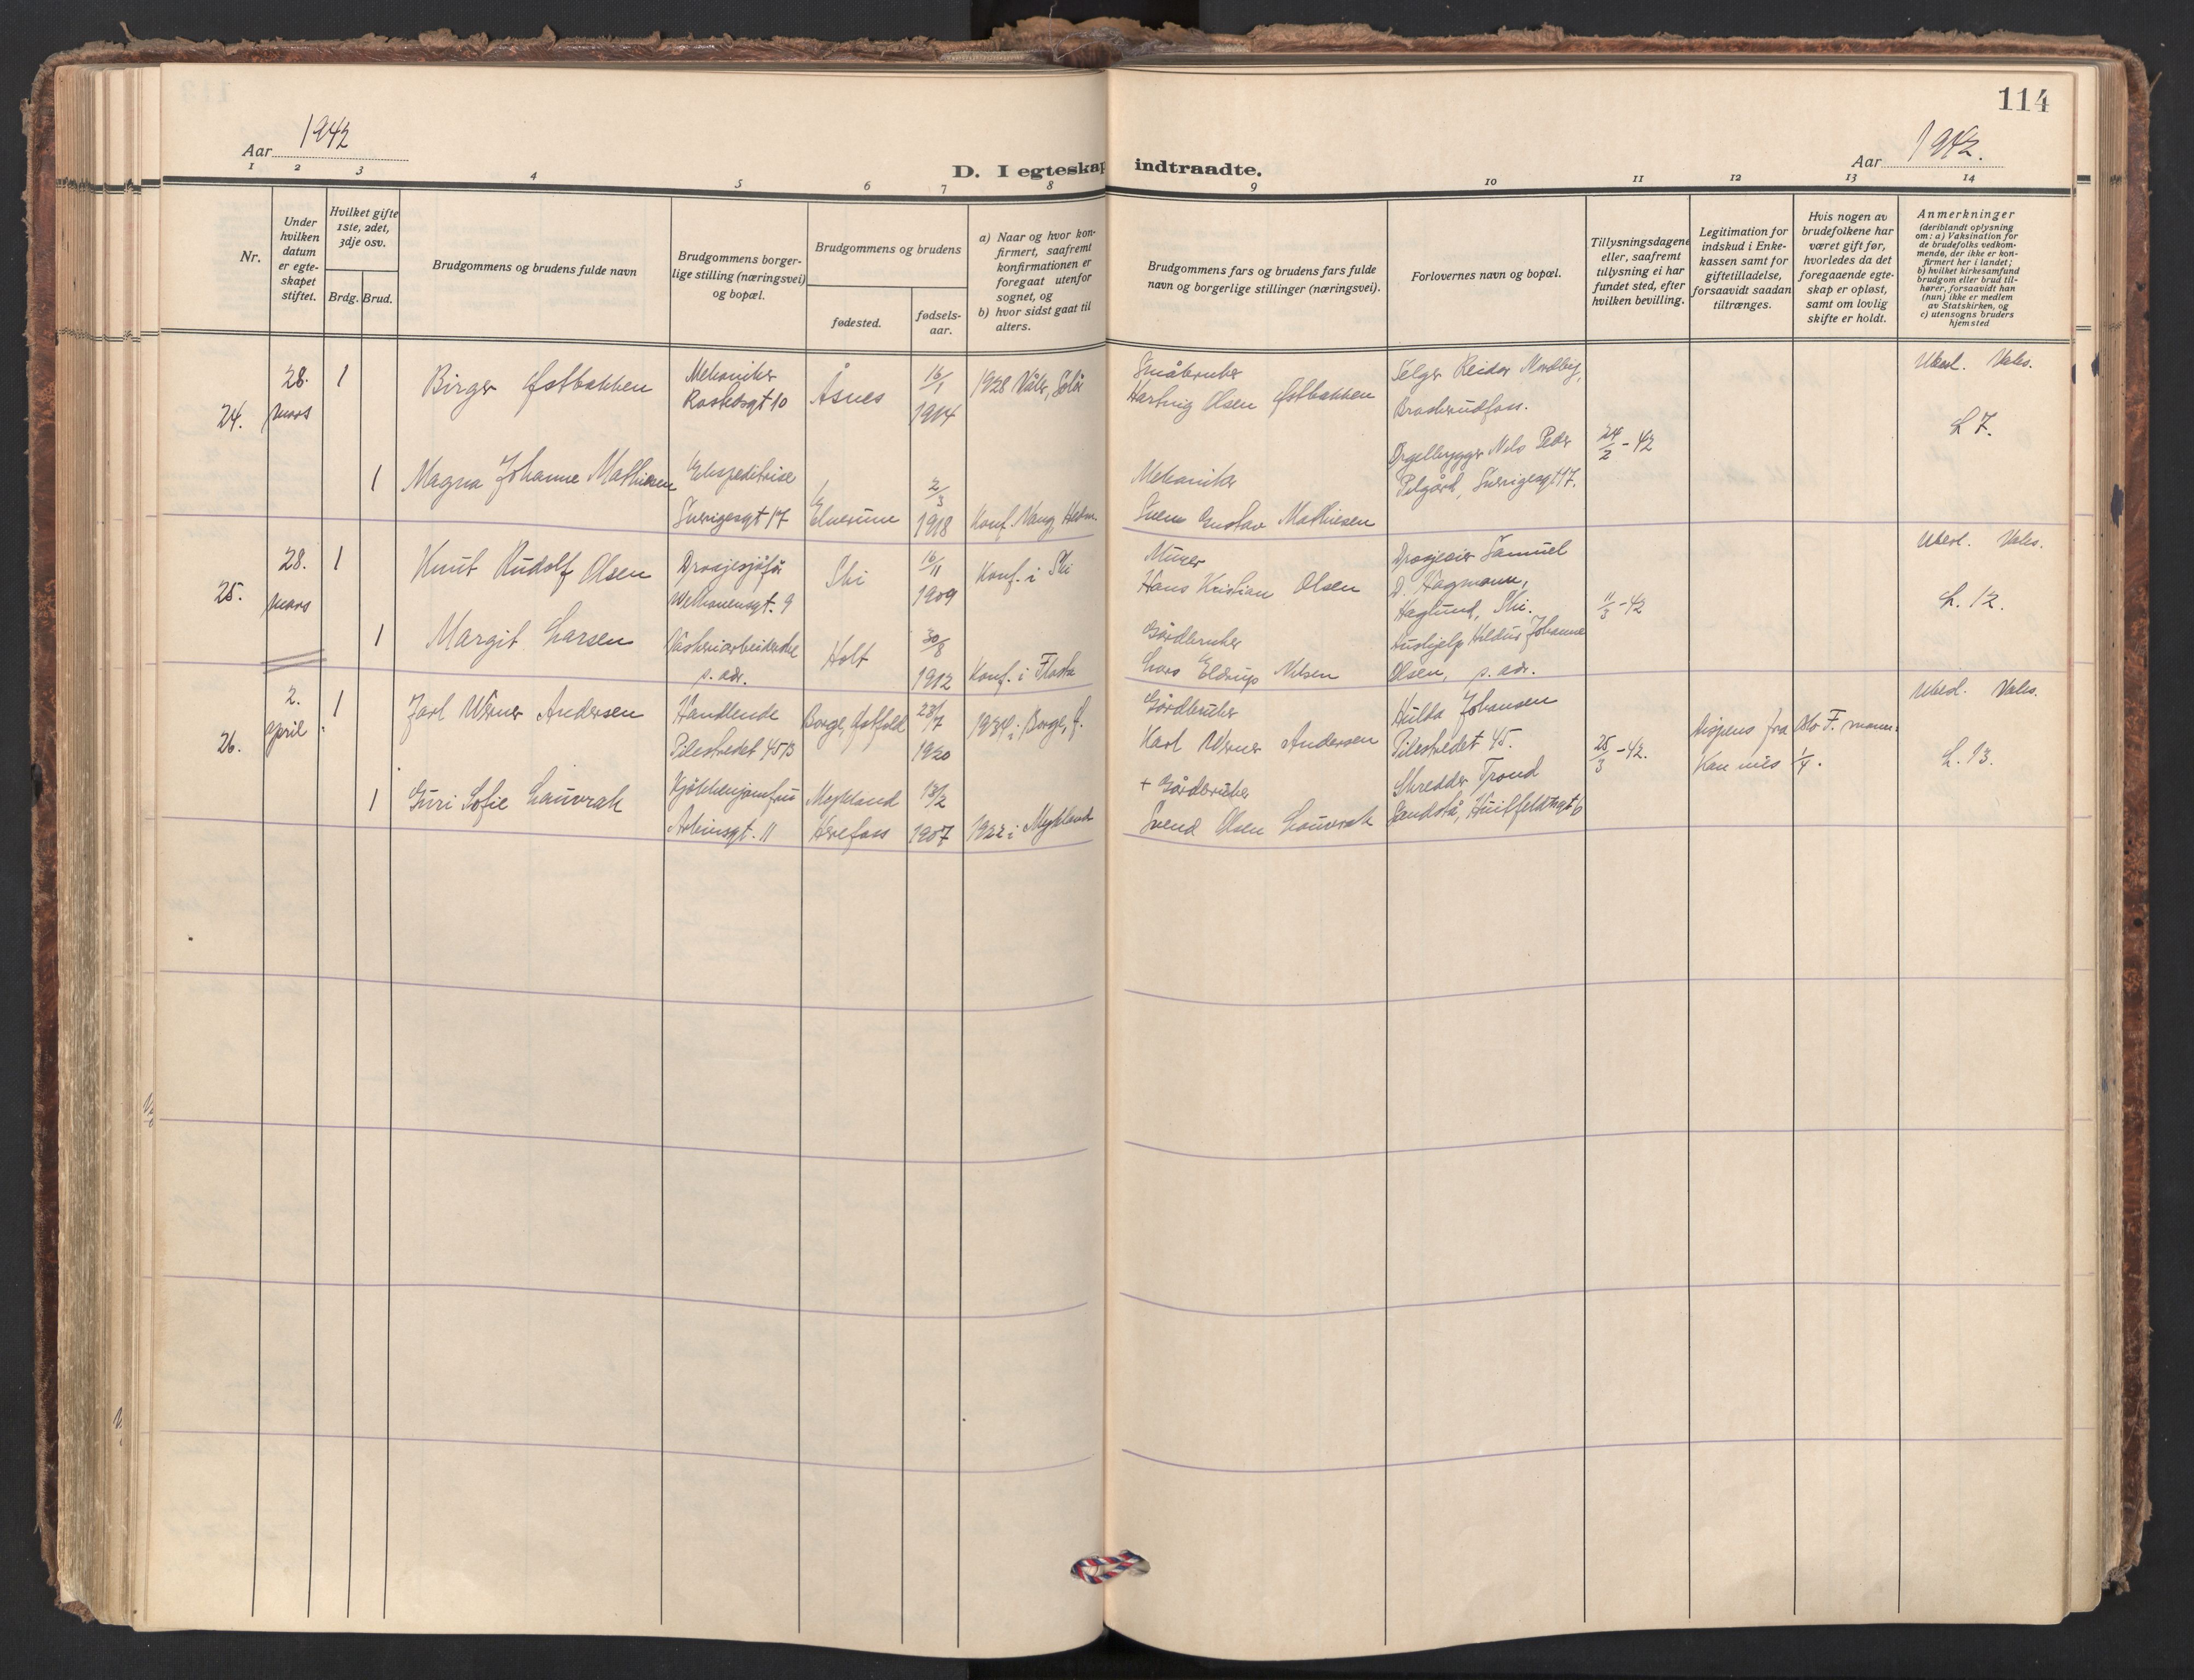 114
Aar 1942
D. I egteskap indtraadte.
Aar 1942.
1 2 3 4 5 6 7 8 9 10 11 12 13 14
Nr.
Under hvilken datum er egteskapet stiftet.
Hvilket gifte 1ste, 2det, 3dje osv.
Brdg. Brud.
Brudgommens og brudens fulde navn
Brudgommens borgerlige stilling (næringsvei) og bopæl.
Brudgommens og brudens
fødested.
fødselsaar.
a) Naar og hvor konfirmert, saafremt konfirmationen er foregaat utenfor sognet, og
b) hvor sidst gaat til alters.
Brudgommens fars og brudens fars fulde navn og borgerlige stillinger (næringsvei).
Forlovernes navn og bopæl.
Tillysningsdagene eller, saafremt tillysning ei har fundet sted, efter hvilken bevilling.
Legitimation for indskud i Enkekassen samt for giftetilladelse, forsaavidt saadan tiltrænges.
Hvis nogen av brudefolkene har været gift før, hvorledes da det foregaaende egteskap er opløst, samt om lovlig skifte er holdt.
Anmerkninger
(deriblandt oplysning om: a) Vaksination for de brudefolks vedkommende, der ikke er konfirmert her i landet; b) hvilket kirkesamfund brudgom eller brud tilhører, forsaavidt han (hun) ikke er medlem av Statskirken, og c) utensogns bruders hjemsted
24.
28. mars
1
Birger Østbakken
Mekaniker
10
Åsnes
16/1 1914
1928 Våler, Solør
Småbruker
Hartvig Olsen Østbakken
Selger Reidar Nordby,
Ubesl. Vaks.
L 7.
1
Magna Johanne Mathiesen
Ekspeditrise
Sverigesgt 17
Elverum
2/3 1918
Konf. Vang, Hedm.
Mekaniker
Svend Gustav Mathiesen
Orgelbygger Nils Peder
Pilgård, Sverigesgt 17.
24/2 - 42
25.
28. mars
1
Knut Rudolf Olsen
Drosjesjåfør
Welhavensgt. 9
Ski
16/11 1909
Konf. i Ski
Murer
Hans Kristian Olsen
Drosjeeier Samuel
D. Hagmann,
Haglund, Ski.
11/3 - 42
Ubesl. Vaks.
L. 12.
1
Margit Larsen
Vaskeriarbeiderske
s. adr.
Holt
30/8 1912
Konf. i Flosta
Gårdbruker
Lars Eldrup Nilsen
Hushjelp Johanne
Olsen, s. adr.
26.
2. april
1
Jarl Werner Andersen
Handlende
Pilestredet 45 B
Borge, Østfold
23/7 1920
1934 i Borge, Ø.
Gårdbruker
Karl Werner Andersen
Hulda Johansen
Pilestredet 45.
25/3 - 42.
Dispens fra Oslo F.
1/4.
Ubesl. Vaks.
L. 13.
1
Guri Sofie Lauvrak
Kjøkkenjomfru
11
Mykland
Herefoss
13/2 1907
1922 i Mykland
+ Gårdbruker
Svend Olsen Lauvrak
Skredder Trond
Sandstå, Huitfeldtsgt 6